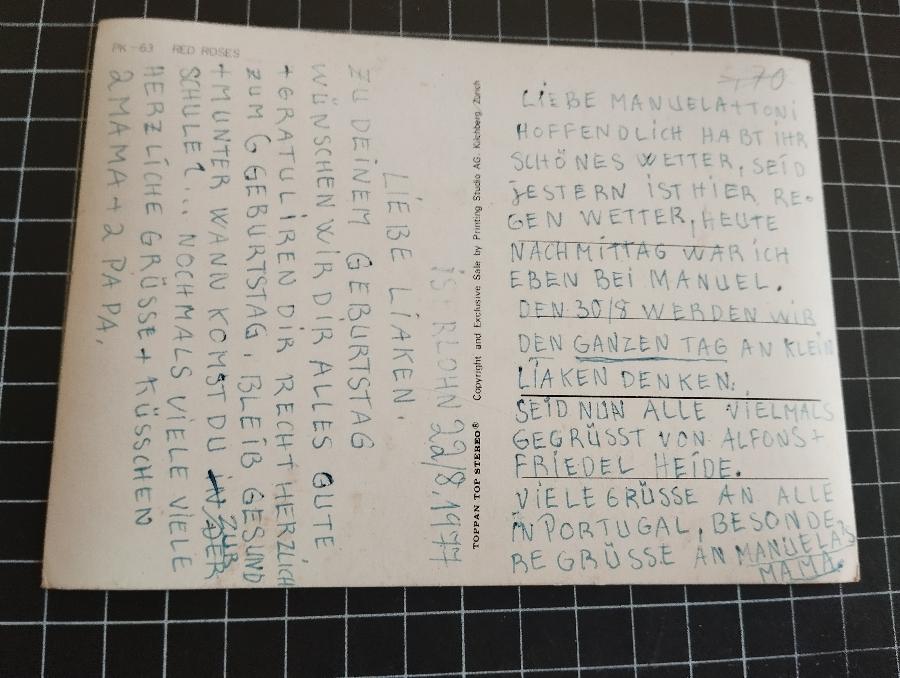 PK-63 RED ROSES
ISERLOHN 22/8.1977
LIEBE LIAKEN.
ZU DEINEM GEBURTSTAG
WÜNSCHEN WIR DIR ALLES GUTE
+ GRATULIREN DIR RECHT HERZLICH
ZUM 6 GEBURTSTAG, BLEIB GESUND
+ MUNTER WANN KOMST DU ZUR
SCHULE?... NOCHMALS VIELE VIELE
HERZLICHE GRÜSSE + KÜSSCHEN
2 MAMA + 2 PAPA.
TOPPAN TOP STEREO® Copyright and Exclusive Sale by Printing Studio AG. Kilchberg/Zürich
-,70
LIEBE MANUELA+TONI
HOFFENDLICH HABT IHR
SCHÖNES WETTER, SEID
JESTERN IST HIER RE-
GEN WETTER, HEUTE
NACHMITTAG WAR ICH
EBEN BEI MANUEL.
DEN 30/8 WERDEN WIR
DEN GANZEN TAG AN KLEIN
LIAKEN DENKEN.
SEID NUN ALLE VIELMALS
GEGRÜSST VON ALFONS +
FRIEDEL HEIDE.
VIELE GRÜSSE AN ALLE
IN PORTUGAL, BESONDE
RE GRÜSSE AN MANUELAS
MAMA.